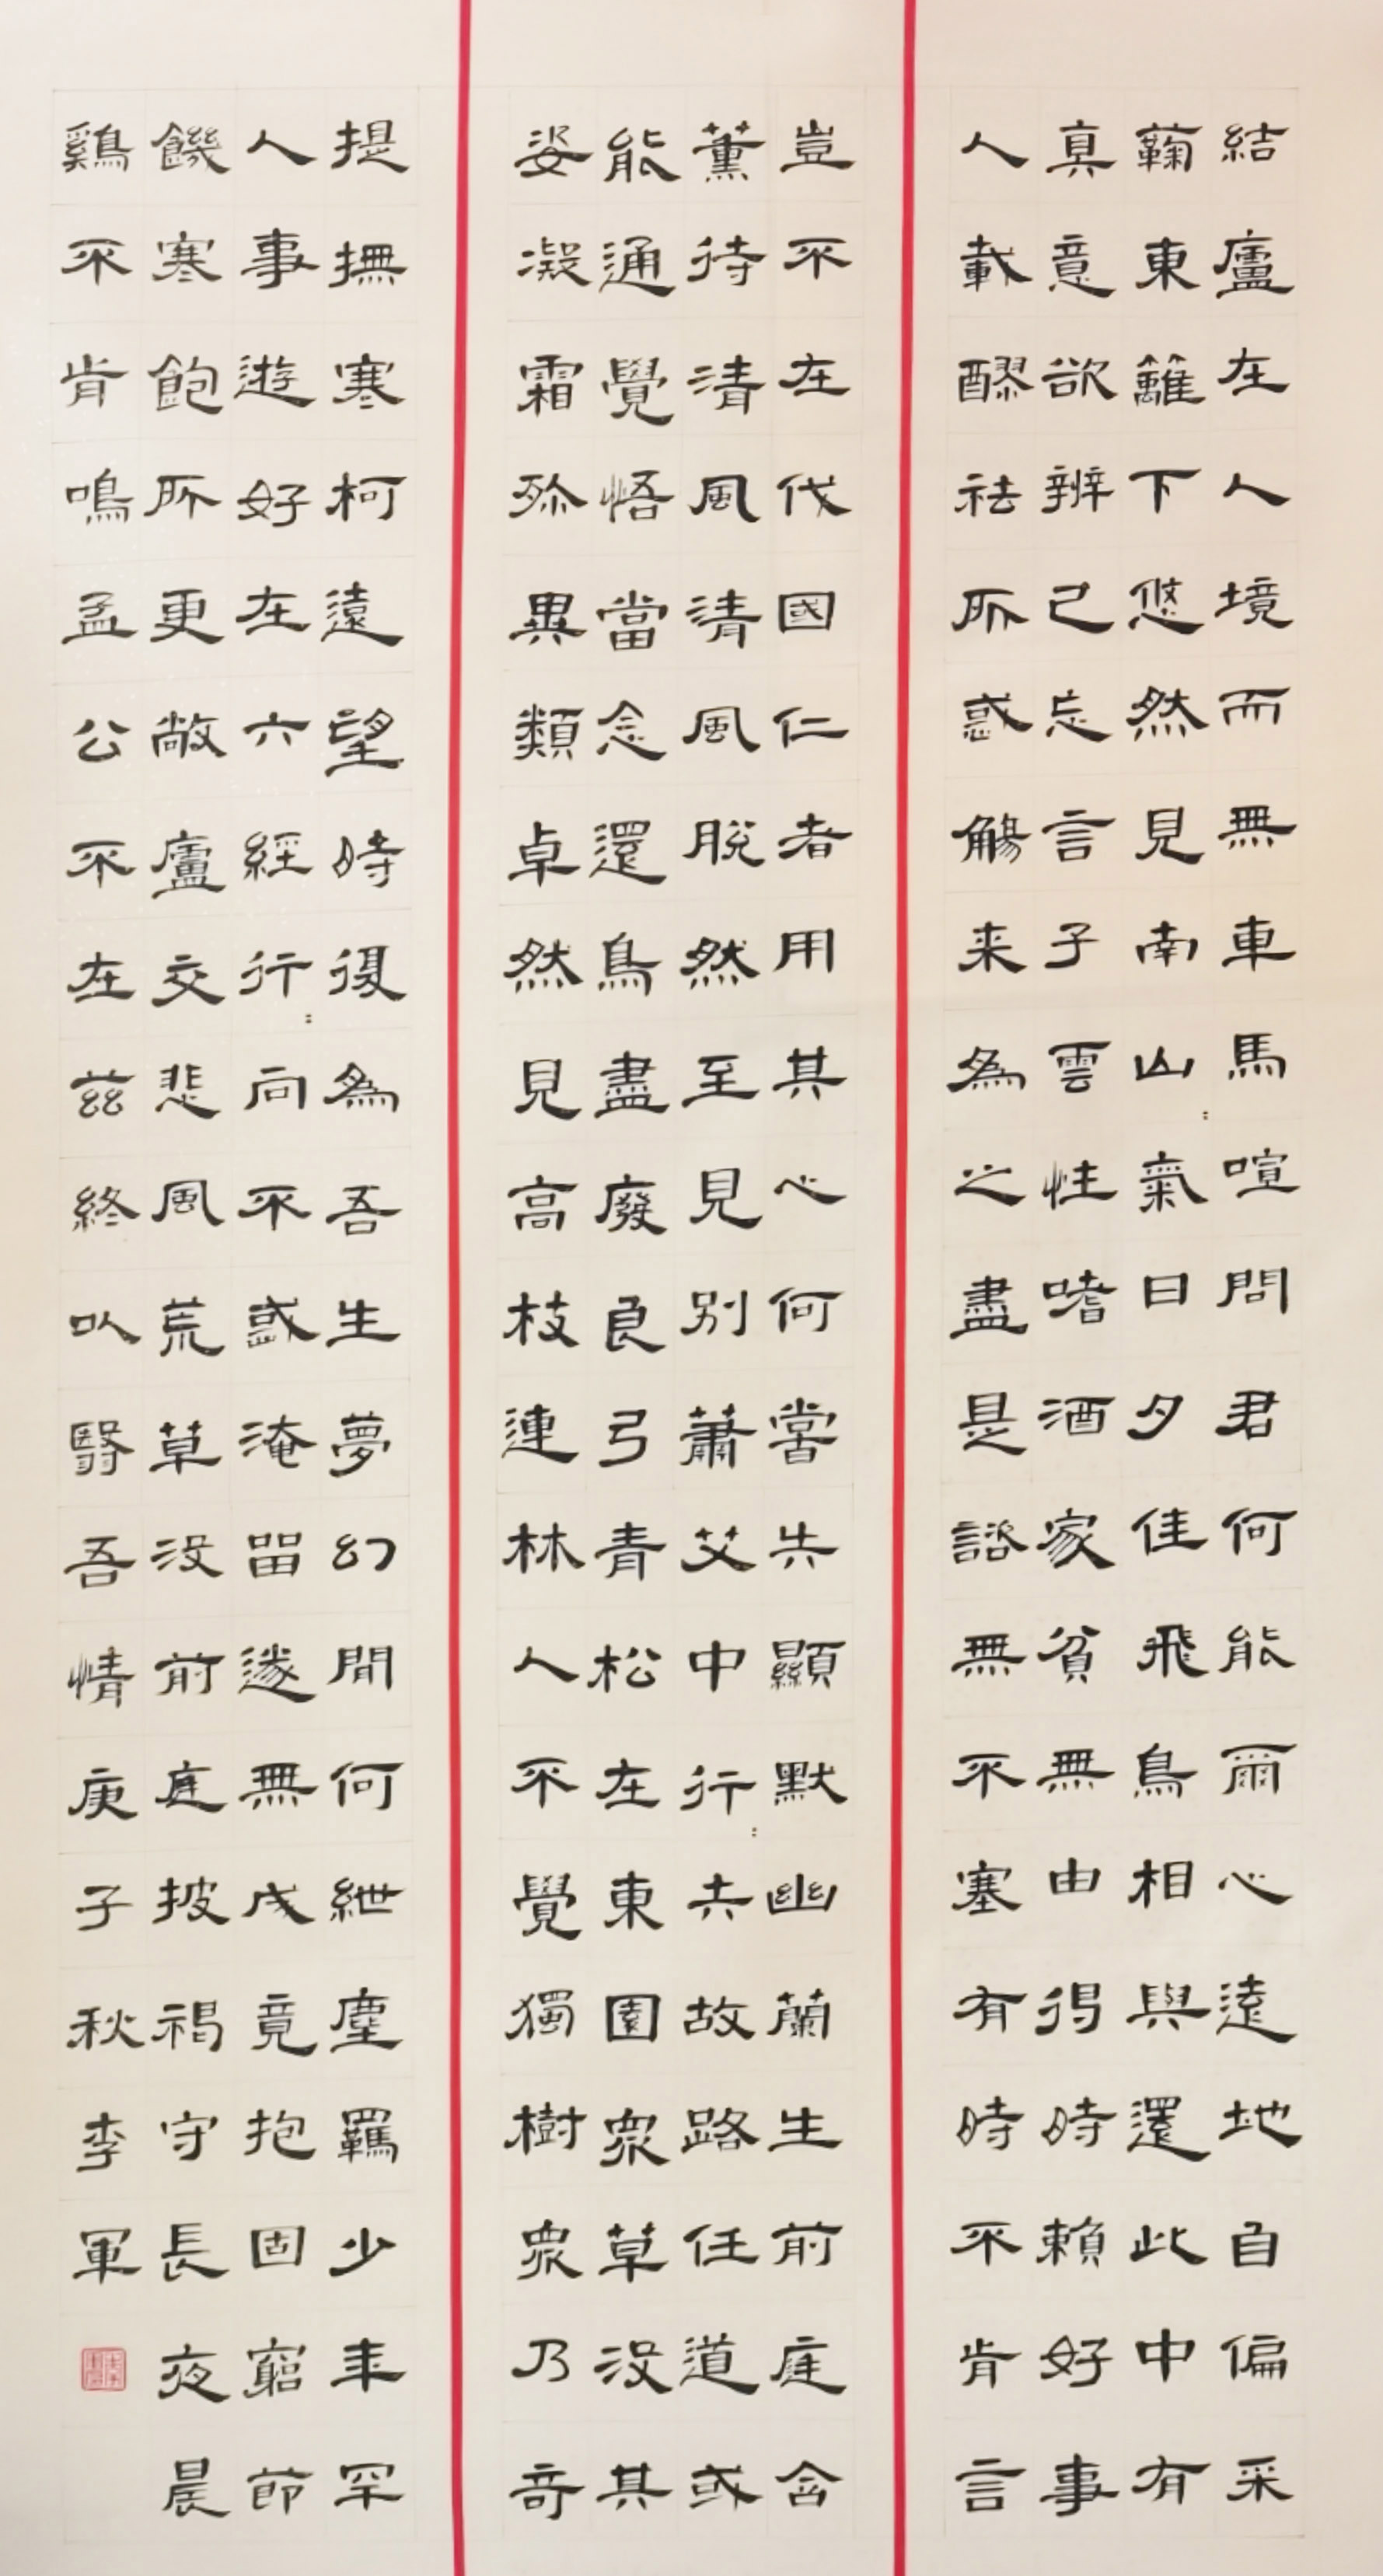 結廬在人境而無車馬喧問君何能爾心遠地自偏采
蘜東籬下悠然見南山〻氣日夕佳飛鳥相與還此中有
真意欲辨已忘言子雲性嗜酒家貧無由得時賴好事
人載醪祛所惑觴来為之盡是諮無不塞有時不肯言
豈不在伐國仁者用其心何嘗失顯默幽蘭生前庭含
薰待清風清風脫然至見別蕭艾中行〻失故路任道或
能通覺悟當念還鳥盡廢良弓青松在東園眾草沒其
姿凝霜殄異類卓然見高枝連林人不覺獨樹眾乃奇
提撫寒柯遠望時復為吾生夢幻間何紲塵羈少年罕
人事遊好在六經行〻向不惑淹留遂無成竟抱固窮節
饑寒飽所更敝廬交悲風荒草沒前庭披褐守長夜晨
鷄不肯鳴孟公不在茲終以翳吾情庚子秋李軍